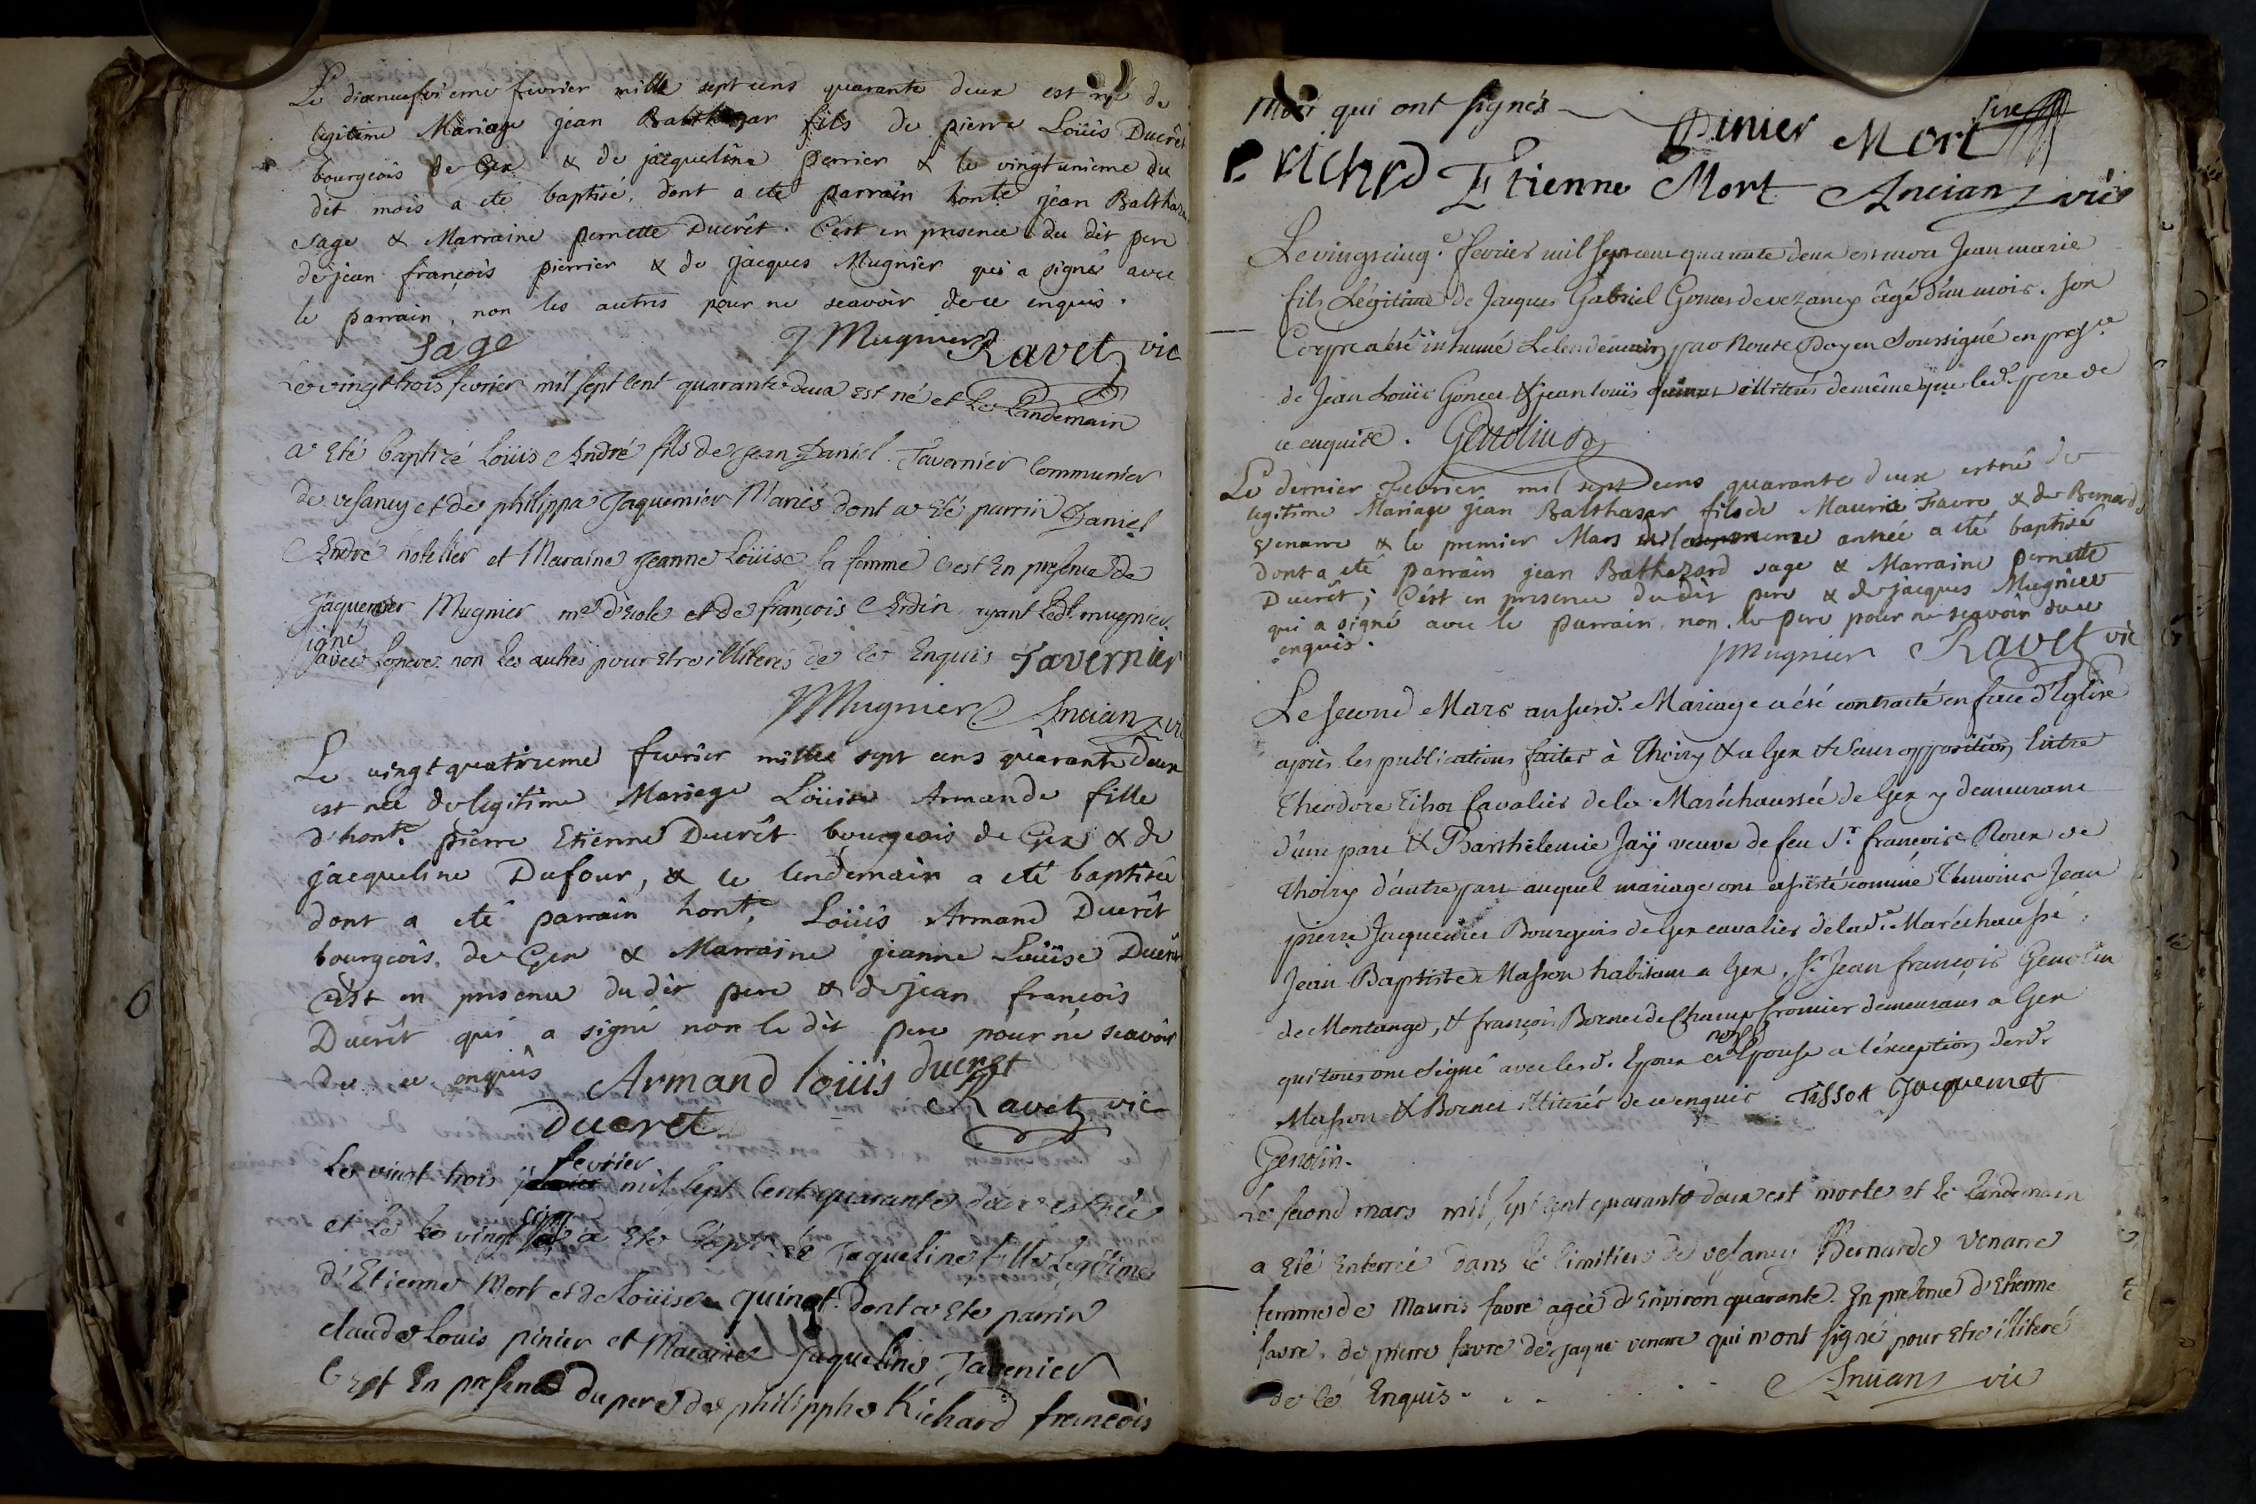 Le dixneufvieme fevrier mille sept cens quarante deux est né de
legitime Mariage jean Balthazar fils de pierre Loüis Ducrêt
bourgeois de Gex & de jacqueline perrier & le vingtunieme du
dit mois a eté baptisé, dont a eté parrain honte jean Balthazar
sage & Marraine pernette Ducrêt. C'est en presence du dit pere
de jean françois pierrier & de jacques Mugnier qui a signé avec
le parrain, non les autres pour ne scavoir de ce enquis.
Sage J Mugnier Ravet vic
Le vingt trois fevrier mil sept cent quarante deux est né et Le Landemain
a Eté baptizé Loüis André fils de jean Daniel Tavernier Communier
de vesancy et de philippa Jaquemier Mariés dont a Eté parrin Daniel
André hotellier et Maraine Jeanne Loüise sa femme C'est En presence de
Jaquemier Mugnier me d'Ecole et de françois Ardin ayant Led. mugnier
signé
avec Le pere non Les autres pour Etre illiterés de ce Enquis Tavernier
JMugnier Ancian vic
Le vingt quatrieme fevrier mille sept cens quarante Deux
est née de legitime Mariage Loüise Armande fille
d'honte. pierre Etienne Ducrêt bourgeois de Gex & de
jacqueline Dufour, & le lendemain a eté baptisée
dont a eté parrain honte. Loüis Armand Ducrêt
bourgeois de Gex & Marraine jeanne Loüise Ducrêt
C'est en presence du dit pere & de jean françois
Ducrêt qui a signé non le dit pere pour ne scavoir
de ce enquis Armand loüis ducret
Ducret Ravet vic
fevrier
Le vingt trois mil sept Cent quarante deux est née
et Le vingt cinq a Eté bapt Jaqueline fille Legitime
d'Etienne Mort et de Loüise quinet dont a Eté parrin
claude Louis pinier et Maraine Jaqueline Tavenier
C'est En presence du pere de philipphe Richard françois
Mort qui ont signés Pinier Mort
p richrd Etienne Mort Ancian vic
Le vingtcinq.e fevrier mil sept cens quarante deux est mort Jean marie
fils Légitime de Jacques Gabriel Goncet de vezancy âgé d'un mois. Son
Corps a été inhumé Le lendemain par Nous Doyen Soussigné en pres.ce
de Jean Loüis Goncet & jean louis quinet illitérés de même que led. pere de
ce enquis. Genolin D
Le dernier Fevrier mil sept cens quarante deux est né de
legitime Mariage jean Balthasar fils de Maurice Favre & de Bernarde
Venarre & le premier Mars année a eté baptisé
dont a eté parrain jean Balthazard sage & Marraine pernette
Ducrêt; C'est en presence du dit pere & de jacques Mugnier
qui a signé avec le parrain, non le pere pour ne scavoir de ce
enquis. JMugnier Ravet vic
Le second Mars an susd. Mariage a été contracté en face d'Eglise
après les publications faites à Thoiry & a Gex & sans opposition Entre
Théodore Tissot Cavalier de la Maréchaussée de Gex y demeurant
d'une part & Barthélemie Jaÿ veuve de feu S.r françois Roux de
Thoiry d'autre part auquel mariage ont assisté comme Témoins Jean
pierre Jacquemet Bourgeois de Gex cavalier de lad.e Maréchaussé,
Jean Baptiste Masson habitant a Gex, S.r Jean françois Genolin
de Montange, & françois Bornet de Champfromier demeurant a Gex
non
qui tous ont signé avec led. Epoux Epouse a l'exception desd.
Masson & Bornet illitérés de ce enquis Tissot Jacquemet
Genolin.
Le second mars mil sept cent quarante deux est morte et Le Landemain
a Eté Enterrée dans Le Cimitiere de vesancy Bernarde venarre
femme de Mauris favre agée d'Environ quarante. En presence d'Etienne
favre, de pierre favre de jaque venare qui n'ont signé pour Etre illiteré
de ce Enquis. Ancian vic